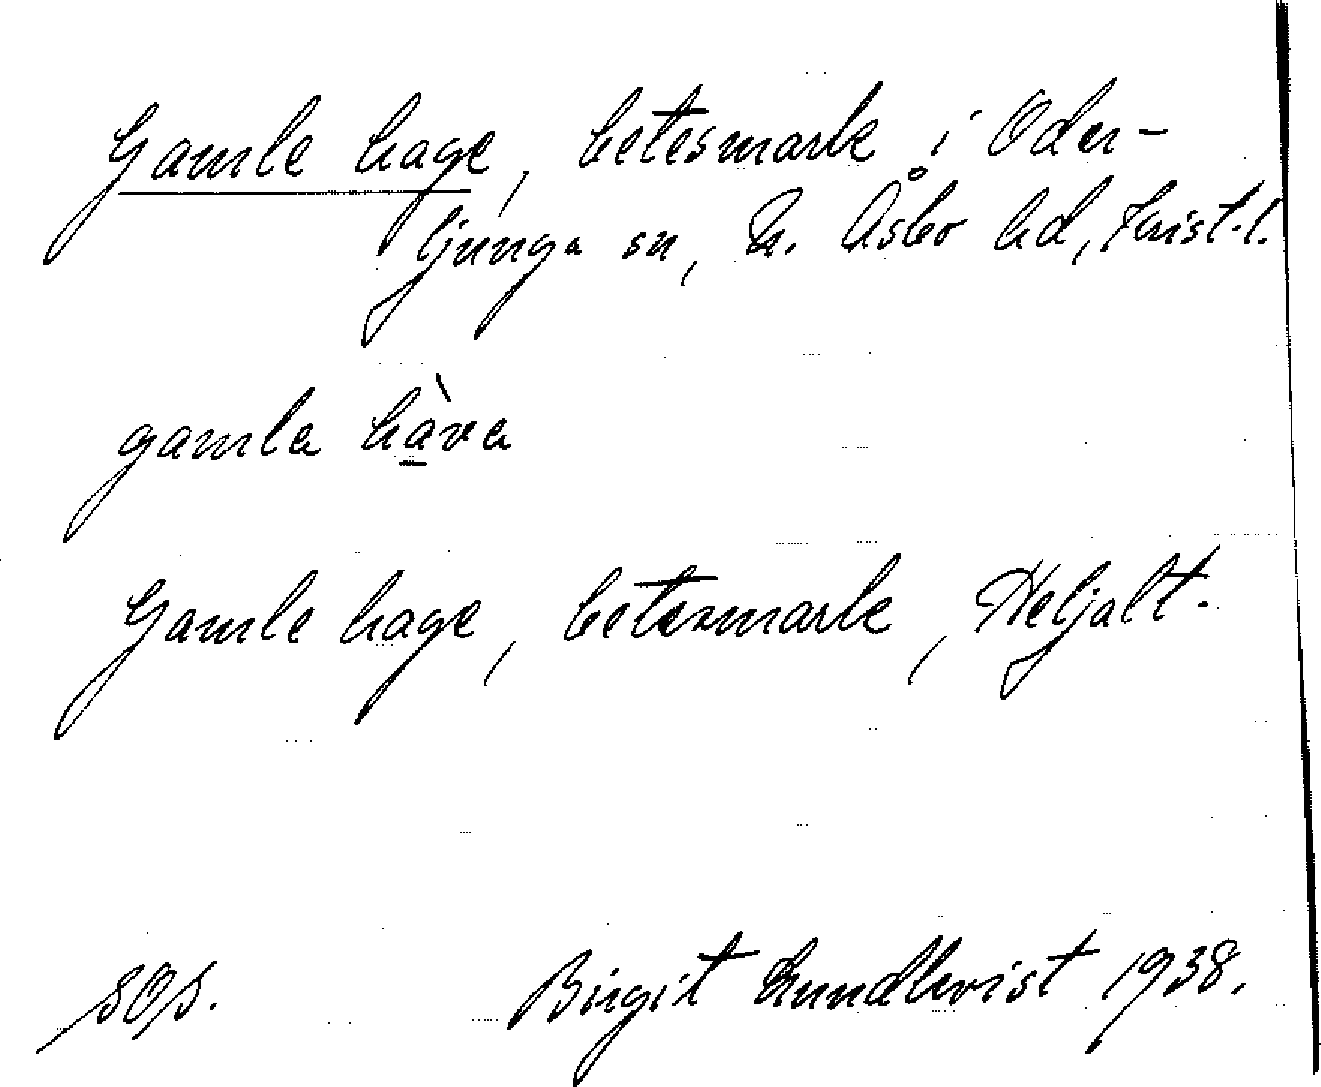 Gamle hage, betesmark i Oder-
ljunga sn, N. Åsbo hd, Krist.l.
gamla hàva
Gamle hage, betesmark, Heljalt.
SOS. Birgit Lundkvist 1938.